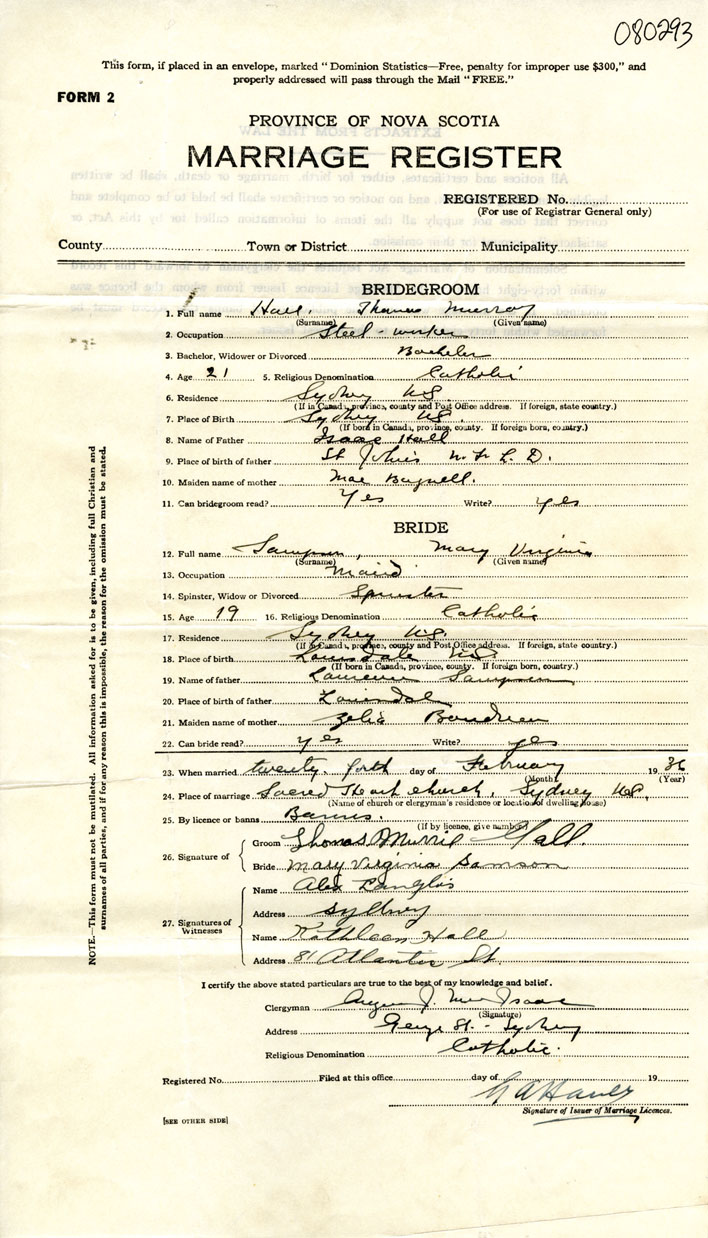 080293
This form, if placed in an envelope, marked "Dominion Statistics—Free, penalty for improper use $300," and
properly addressed will pass through the Mail "FREE."
FORM 2
PROVINCE OF NOVA SCOTIA
MARRIAGE REGISTER
REGISTERED No.
(For use of Registrar General only)
County Town or District Municipality
BRIDEGROOM
1. Full name Hall, Thomas Murray
(Surname) (Given name)
2. Occupation Steel-worker
3. Bachelor, Widower or Divorced Bachelor
4. Age 21 5. Religious Denomination Catholic
6. Residence Sydney N.S.
(If in Canada, province, county and Post Office address. If foreign, state country.)
7. Place of Birth Sydney N.S.
(If born in Canada, province, county. If foreign born, country.)
8. Name of Father Isaac Hall
9. Place of birth of father St John's N.F.L.D.
10. Maiden name of mother Mae Bagnell.
11. Can bridegroom read? Yes Write? yes
BRIDE
12. Full name Sampson, Mary Virginia
(Surname) (Given name)
13. Occupation Maid
14. Spinster, Widow or Divorced Spinster
15. Age 19 16. Religious Denomination Catholic
17. Residence Sydney N.S.
(If in Canada, province, county and Post Office address. If foreign, state country.)
18. Place of birth Louisdale N.S.
(If born in Canada, province, county. If foreign born, country.)
19. Name of father Laurence Sampson
20. Place of birth of father
21. Maiden name of mother Zelia Boudreau
22. Can bride read? yes Write? yes
23. When married twenty, forth day of February 1936
(Month) (Year)
24. Place of marriage Sacred Heart church, Sydney N.S.
(Name of church or clergyman's residence or location of dwelling house)
25. By licence or banns Banns.
(If by licence, give number)
26. Signature of
Groom Thomas Murril Hall.
Bride Mary Virginia Samson
27. Signatures of Witnesses
Name Alex Langlois
Address Sydney
Name Kathleen Hall
Address 81 Atlantic St.
I certify the above stated particulars are true to the best of my knowledge and belief.
Clergyman Angus J. MacIsaac
(Signature)
Address George St. - Sydney
Religious Denomination Catholic.
Registered No. Filed at this office day of 19
Signature of Issuer of Marriage Licences.
[SEE OTHER SIDE]
NOTE.—This form must not be mutilated. All information asked for is to be given, including full Christian and
surnames of all parties, and if for any reason this is impossible, the reason for the omission must be stated.